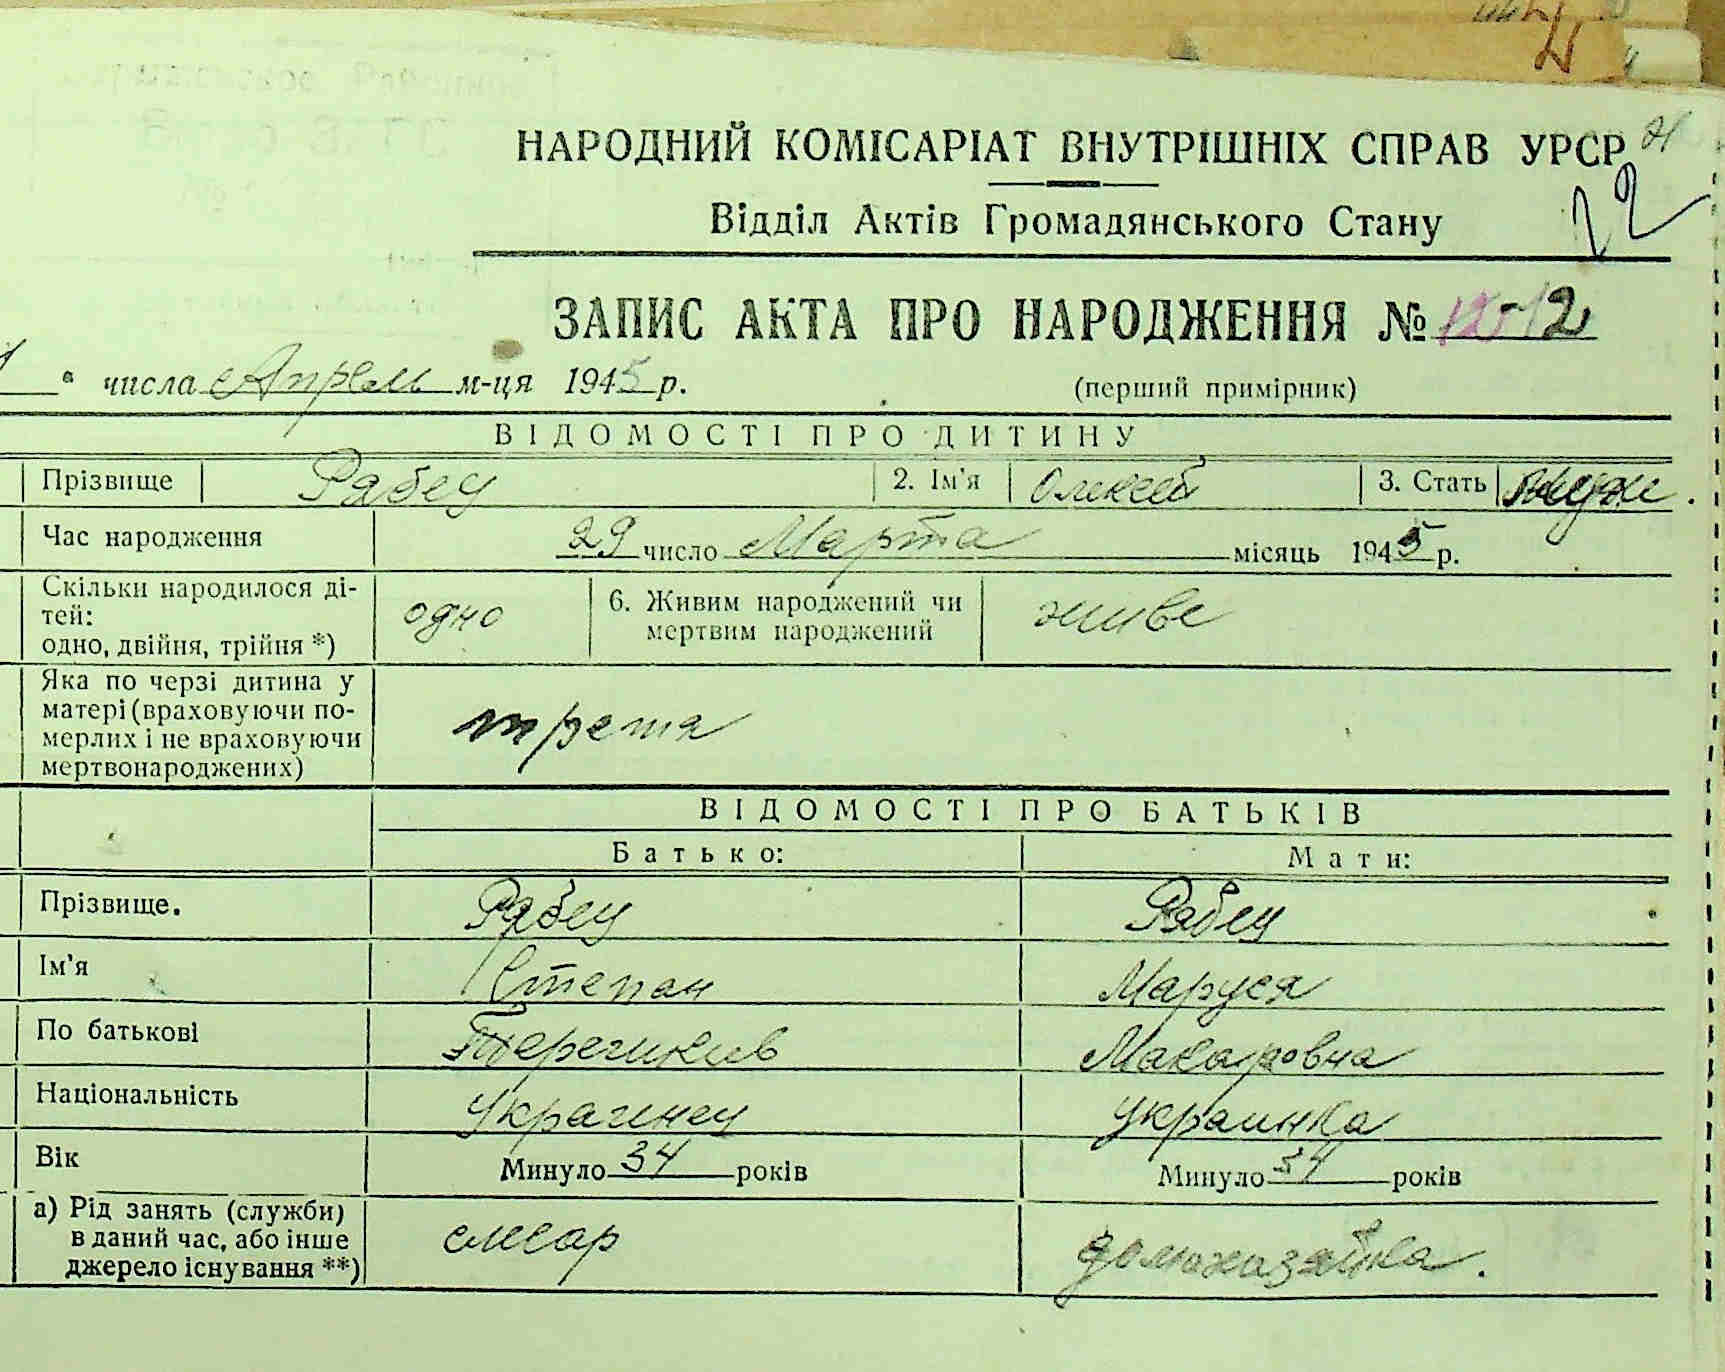 НАРОДНИЙ КОМІСАРІАТ ВНУТРІШНІХ СПРАВ УРСР
12
Відділ Актів Громадянського Стану
ЗАПИС АКТА ПРО НАРОДЖЕННЯ № 12
" числа Апрель м-ця 1945 р.
(перший примірник)
ВІДОМОСТІ ПРО ДИТИНУ
Прізвище Рабец 2. Ім'я Олексей 3. Стать муж.
Час народження 29 число Марта місяць 1945 р.
Скільки народилося ді-
тей:
одно, двійня, трійня *)
одно
6. Живим народжений чи
мертвим народжений
живе
Яка по черзі дитина у
матері (враховуючи по-
мерлих і не враховуючи
мертвонароджених)
третя
ВІДОМОСТІ ПРО БАТЬКІВ
Батько: Мати:
Прізвище. Рабец Рабец
Ім'я Степан Маруся
По батькові Макаровна
Національність Украинец украинка
Вік Минуло 34 років Минуло 34 років
а) Рід занять (служби)
в даний час, або інше
джерело існування **)
слесар
домохазайка.